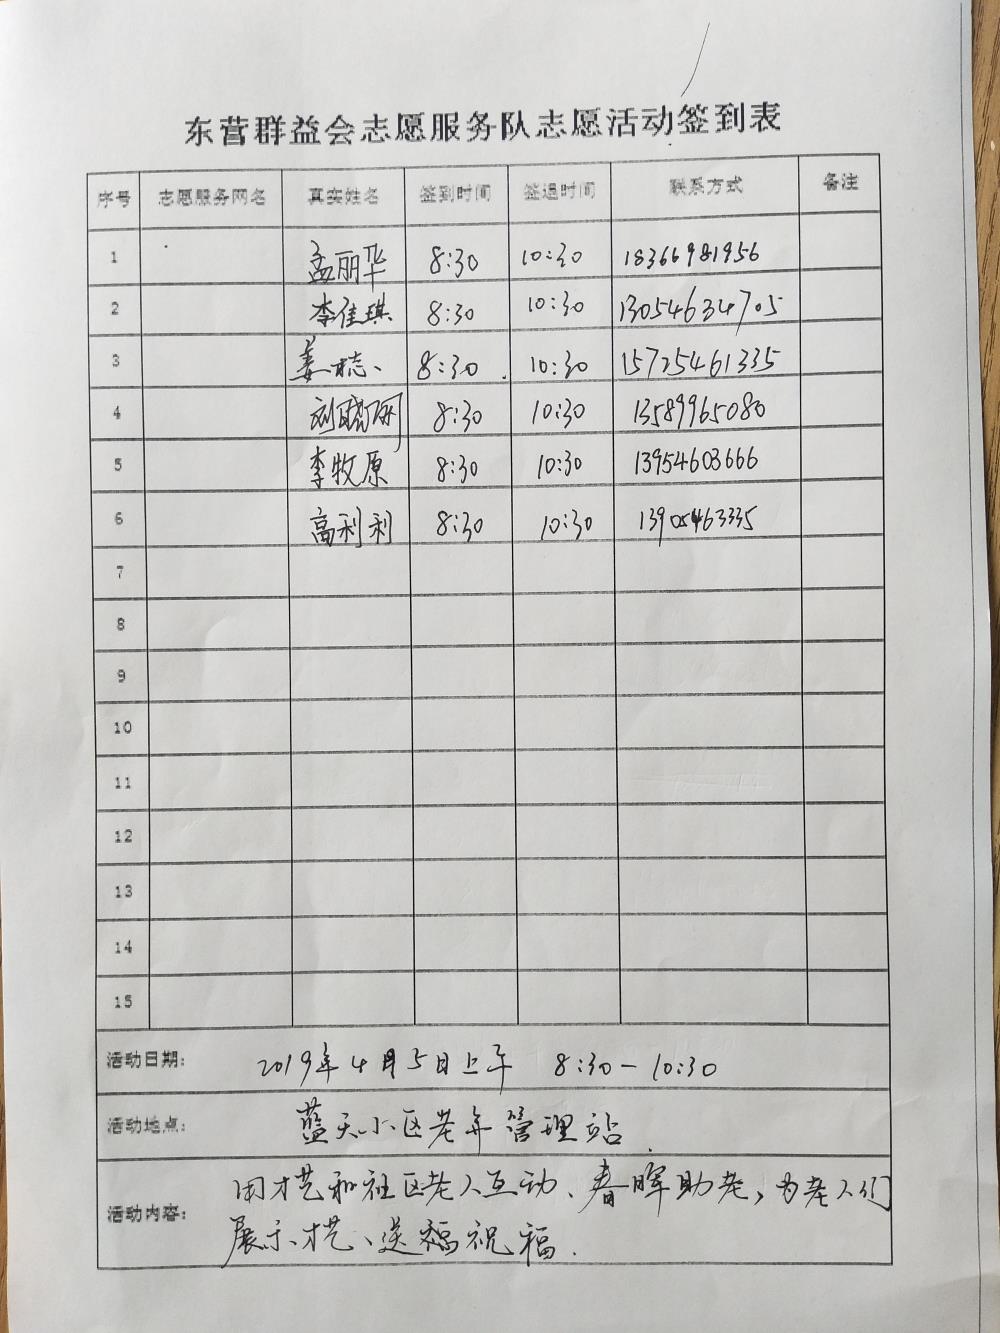 东营群益会志愿服务队志愿活动签到表
序号 志愿服务网名 真实姓名 签到时间 签退时间 联系方式 备注
1 孟丽华 8:30 10:30 18366981956
2 李佳琪 8:30 10:30 13054634705
3 姜 8:30 10:30 15725461335
4 刘晓丽 8:30 10:30 13589965080
5 李牧原 8:30 10:30 13954603666
6 高利利 8:30 10:30 13905463335
7
8
9
10
11
12
13
14
15
活动日期: 2019年4月5日上午 8:30-10:30
活动地点: 蓝天小区老年管理站.
活动内容: 用才艺和社区老人互动、春晖助老,为老人们
展示才艺、送福祝福.